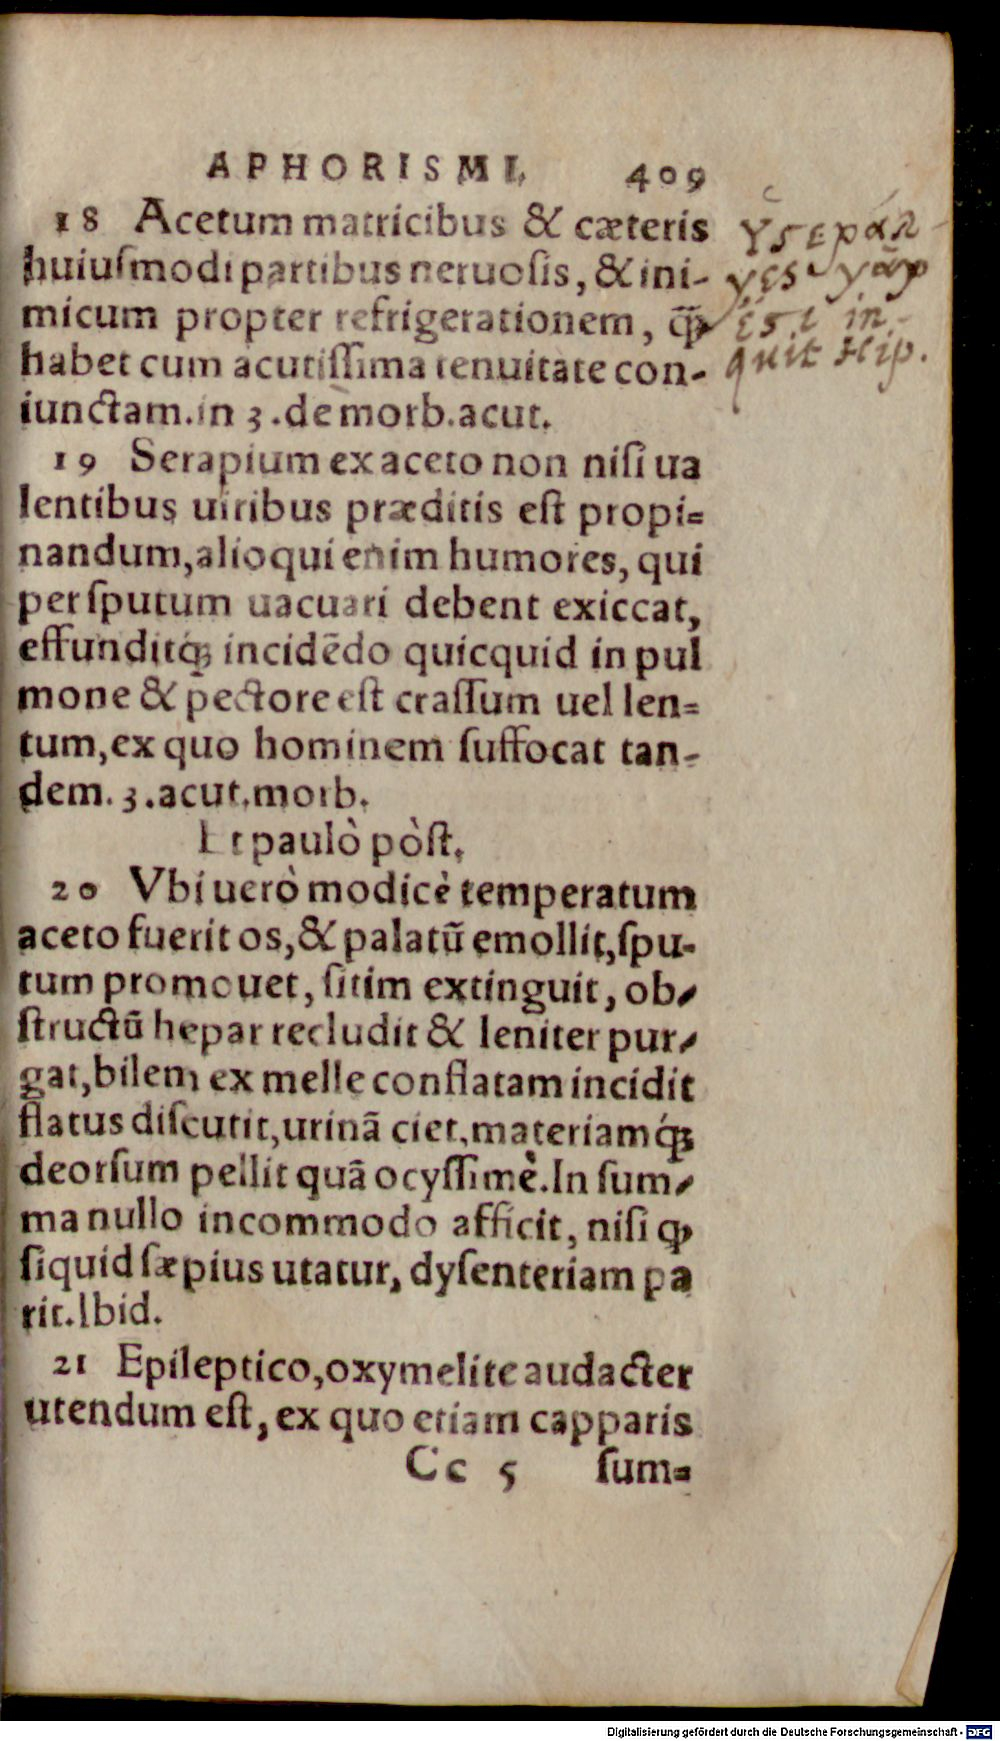 APHORISMI. 409
18 Acetum matricibus & cæteris
huiuſmodi partibus neruoſis, & ini-
micum propter refrigerationem, q̃
habet cum acutiſſima tenuitate con-
iunctam. in 3. de morb. acut.
19 Serapium ex aceto non niſi ua
lentibus uiribus præditis eſt propi=
nandum, alioqui enim humores, qui
per ſputum uacuari debent exiccat,
effunditq́; incidẽdo quicquid in pul
mone & pectore eſt craſſum uel len=
tum, ex quo hominem ſuffocat tan-
dem. 3. acut. morb.
Et paulò pòſt.
20 Vbi uerò modicè temperatum
aceto fuerit os, & palatũ emollit, ſpu-
tum promouet, ſitim extinguit, ob-
ſtructũ hepar recludit & leniter pur-
gat, bilem ex melle conflatam incidit
flatus diſcutit, urinã ciet, materiamq́;
deorſum pellit quã ocyſſimè. In ſum-
ma nullo incommodo afficit, niſi ꝙ
ſiquid ſæpius utatur, dyſenteriam pa
rit. Ibid.
21 Epileptico, oxymelite audacter
utendum eſt, ex quo etiam capparis
Cc 5 ſum=
in-
quit Hip.
Digitalisierung gefördert durch die Deutsche Forschungsgemeinschaft - DFG